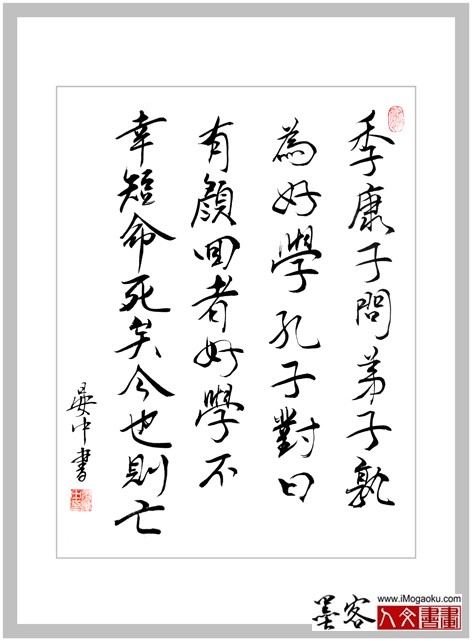 季康子問弟子孰
為好學孔子對曰
有顏回者好學不
幸短命死矣今也則亡
晏中書
www.iMogaoku.com
墨客
人文書畫